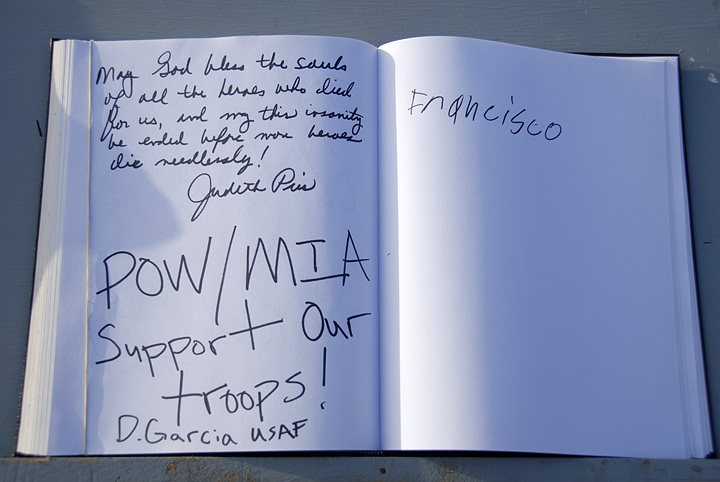 May God bless the souls
of all the heroes who died
for us, and my this insanity
be ended before more heroes
die needlessly!
Judith
POW/MIA
Support Our
troops!
D. Garcia USAF
Francisco